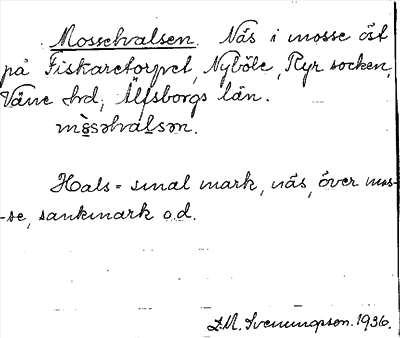 Mossehalsen. Näs i mosse öst
på Fiskaretorpet, Nyböle, Ryr socken,
Väne hrd, Älfsborgs län.
mòsəhalsən.
Hals = smal mark, näs, över mos-
-se, sankmark o.d.
L.M. Svenungsson. 1936.